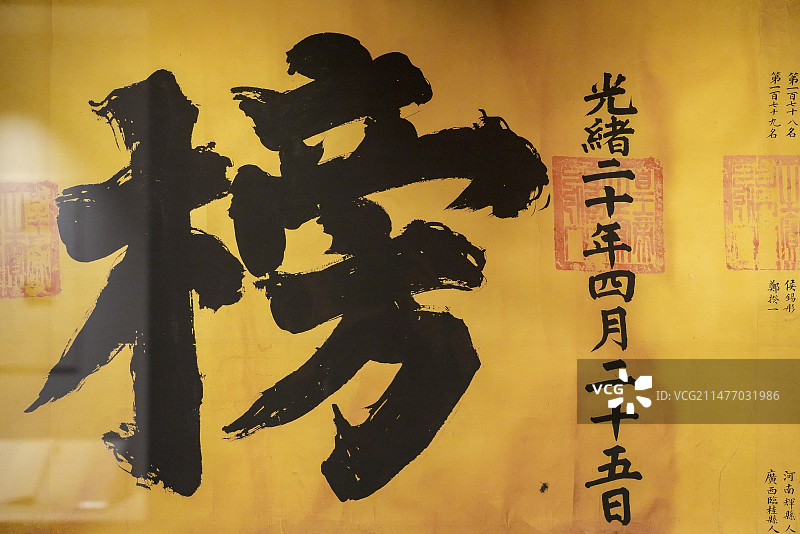 第一百七十八名 侯錫彤 河南輝縣人
第一百七十九名 鄭揆一 廣西臨桂縣人
光緒二十年四月二十五日
榜
VCG
VCG211477031986